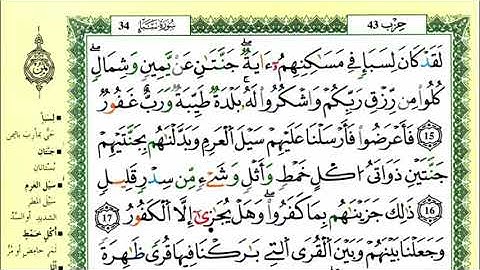 حِزْب 43
سُورَةُ سَبَإ 34
لَقَدْ كَانَ لِسَبَإٍ فِي مَسَاكِنِهِمُۥٓ ءَايَةٌۖ جَنَّتَٰنِ عَنْ يَّمِينٍ وَشِمَالٍۖ
كُلُوا۟ مِن رِّزْقِ رَبِّكُمْ وَاشْكُرُوا۟ لَهُۥۚ بَلْدَةٌ طَيِّبَةٌ وَرَبٌّ غَفُورٌ
15 فَأَعْرَضُوا۟ فَأَرْسَلْنَا عَلَيْهِمْ سَيْلَ الْعَرِمِ وَبَدَّلْنَٰهُم بِجَنَّتَيْهِمْ
جَنَّتَيْنِ ذَوَاتَىْ أُكْلٍ خَمْطٍ وَأَثْلٍ وَشَىْءٍ مِّن سِدْرٍ قَلِيلٍ
16 ذَٰلِكَ جَزَيْنَٰهُم بِمَا كَفَرُوا۟ۖ وَهَلْ يُجَٰزَىٰٓ إِلَّا الْكَفُورُ
17 وَجَعَلْنَا بَيْنَهُمْ وَبَيْنَ الْقُرَى الَّتِي بَٰرَكْنَا فِيهَا قُرًى ظَٰهِرَةً
لِسَبَإ
حَيٌّ بمأرب باليمن
جَنَّتَانِ
بُسْتَانَانِ
سَيْلَ العَرِمِ
سَيْلَ المطر
الشديد أو السَّدّ
أُكْلٍ خَمْطٍ
ثَمَرٍ حامِضٍ أو مُرّ